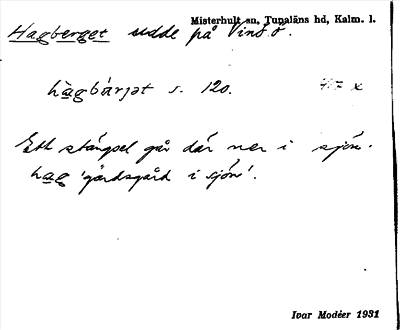 Misterhult sn, Tunaläns hd, Kalm. l.
Hagberget udde på Vinö ö.
hàgbárjət s. 120.
Ett stängsel går där ner i sjön.
hag 'gärdsgård i sjön'.
Ivar Modéer 1931